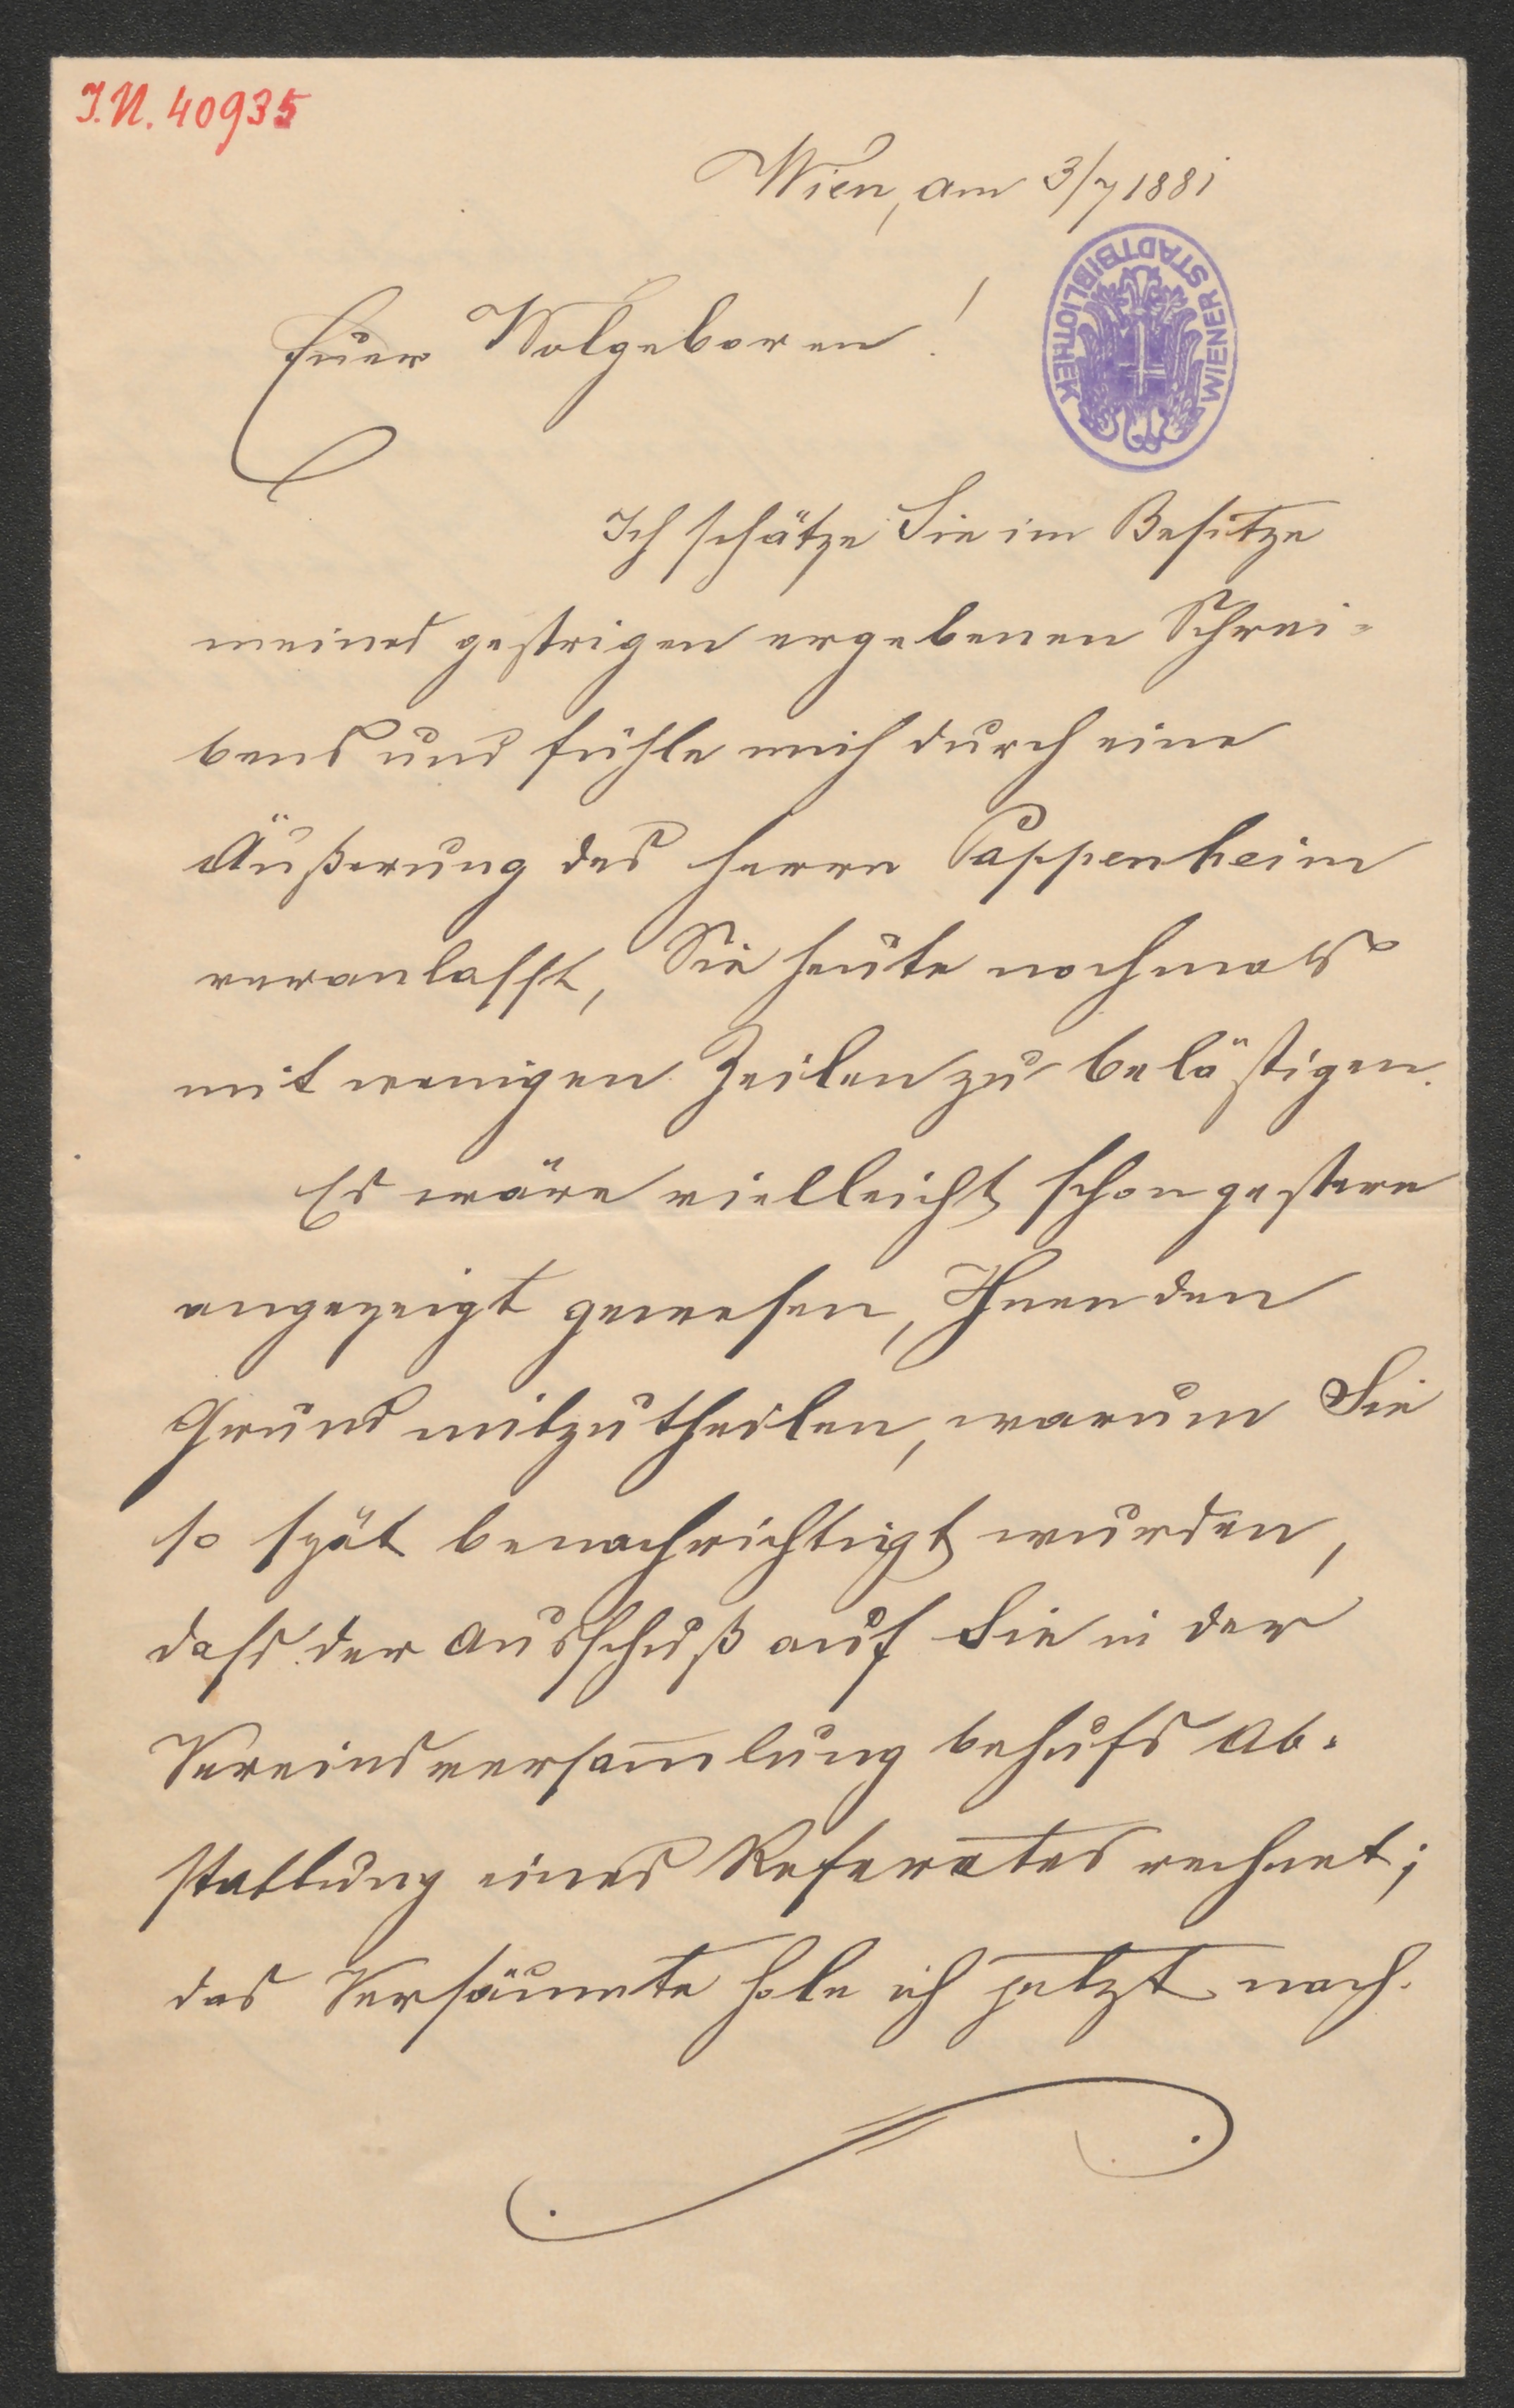 I.N. 40935
Wien, am 3/7 1881
Euer Wolgeboren!
WIENER STADTBIBLIOTHEK
Ich schätze Sie im Besitze
meines gestrigen ergebenen Schrei-
bens und fühle mich durch eine
Äußerung des Herrn Pappenheim
veranlasst, Sie heute nochmals
mit wenigen Zeilen zu belästigen.
Es wäre vielleicht schon gestern
angezeigt gewesen, Ihnen den
Grund mitzutheilen, warum Sie
so spät benachrichtigt wurden,
dass der Ausschuß auf Sie in der
Vereinsversam̅lung behufs Ab-
stattung eines Referates rechnet;
das Versäumte hole ich jetzt nach.